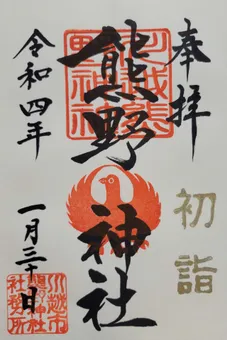 奉拝
初詣
熊野神社
川越熊野神社
令和四年
一月三十日
川越市
熊野神社
社務所